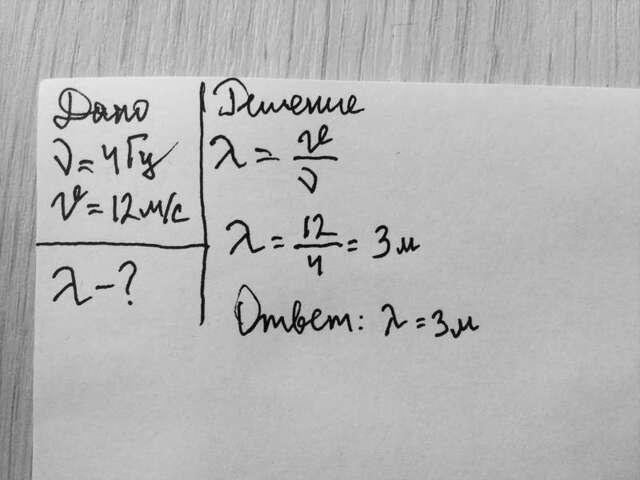 Дано
ν = 4 Гц
v = 12 м/с
λ - ?
Решение
λ = v/ν
λ = 12/4 = 3 м
Ответ: λ = 3 м